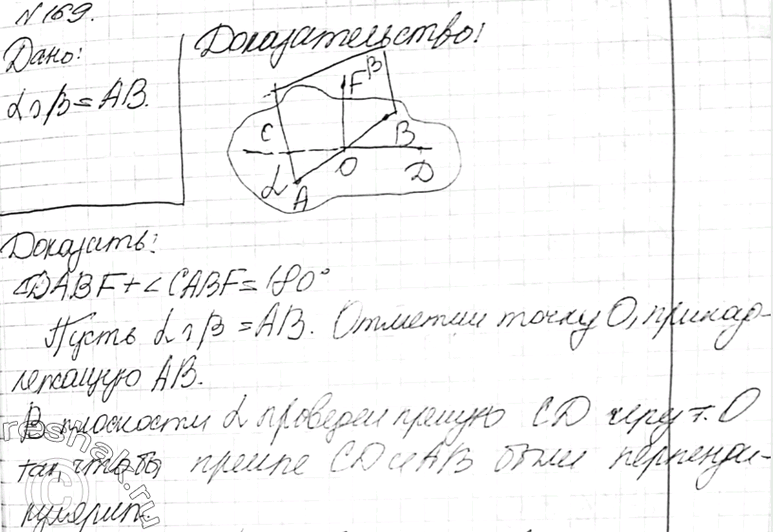 №169.
Дано:
α∩β=AB.
Доказательство:
β
F
C
B
α
A
O
D
Доказать:
∠DABF+∠CABF=180°
Пусть α∩β=AB. Отметим точку O, принад-
лежащую AB.
В плоскости α проведем прямую CD через т. O
так, чтобы прямые CD и AB были перпенди-
кулярны.
reshak.ru